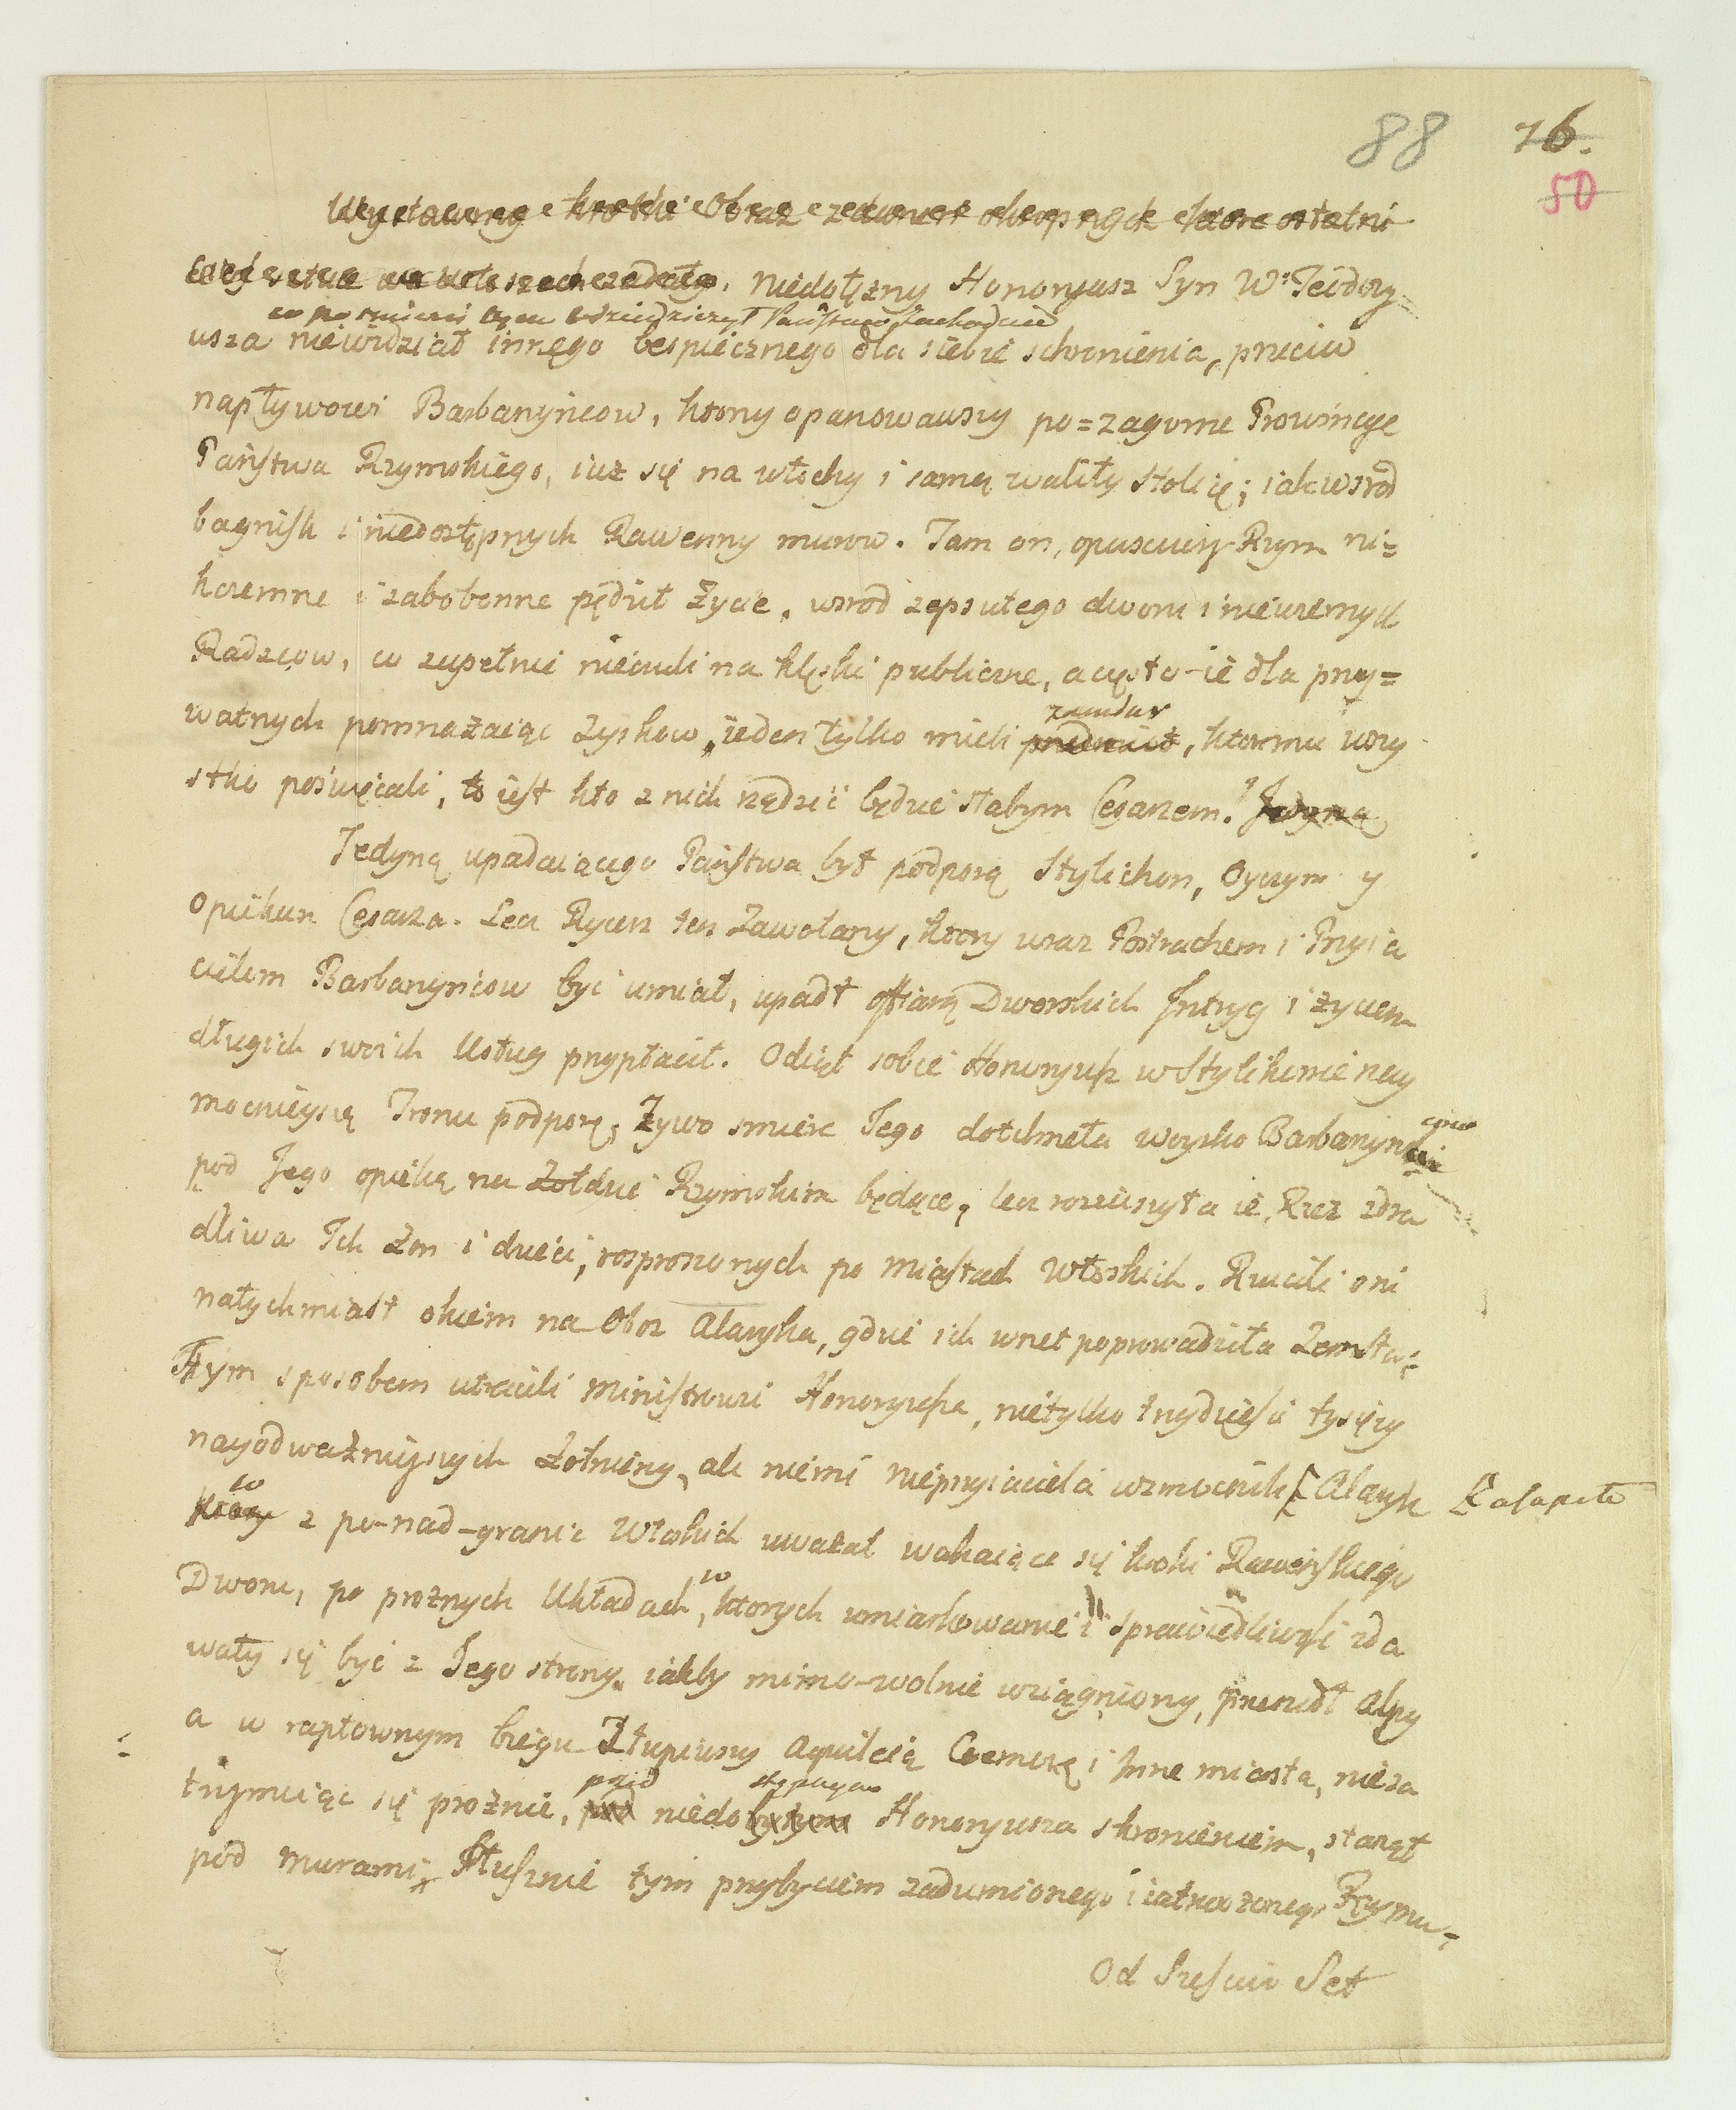 88 76.
50
Wystawmy krótki Obraz okropnych które ostatni
niedołężny Honoryusz Syn Wo Teodozy=
co po smierci Oyca odziedziczył Państwo Zachodnie
usza niewidział innego bespiecznego dla siebie schronienia, przeciw
napływowi Barbarzyńcow, ktorzy opanowawszy po=zagorne Prowincye
Państwa Rzymskiego, iuż się na włochy i samą walily Stolicę; iak wsrod
bagnisk i niedostępnych Rawenny murow. Tam on, opusciwszy Rzym ni=
kczemne i zabobonne pędził życie, wsrod zepsutego dworu i niewiernych
Radzcow, co zupełnie nieczuli na klęski publiczne, a często ie dla pry=
watnych pomnażaiąc zyskow, ieden tylko mieli przedmiot, ktoremu wszy
zamiar
stko poświęcali, to iest kto z nich rządzić będzie słabym Cesarzem. Jedyną
Jedyną upadaiącego Państwa był podporą Stylichon, Oyczym y
Opiekun Cesarza. Lecz Rycerz ten Zawołany, ktory wraz Postrachem i Przyia
cielem Barbarzyńcow być umiał, upadł offiarą Dworskich Intryg i życiem
długich swoich Usług przypłacił. Odiął sobie Honoryusz w Stylikonie nay
mocnieyszą Tronu podporę, Żywo smierc Jego dotchnęła woysko Barbarzyncow
pod Jego opieką na Żołdzie Rzymskim będące, lecz roziuszyła ie, Rzeź zdra
dliwa Ich żon i dzieci, rosproszonych po miastach Włoskich. Rzucili oni
natychmiast okiem na Oboz Alaryka, gdzie ich wnet poprowadziła Zemsta;
Tym sposobem utracili Ministrowie Honoryusza, nietylko trzydzieści tysięcy
nayodważnieyszych Żołnierzy, ale niemi nieprzyiaciela wzmocnili [Alaryk
co
Ktory z po-nad-granic Włoskich uważał wahaiące się kroki Raweńskiego
Dworu, po prożnych Układach, co ktorych umiarkowanie i sprawiedliwość zda
wały się być z Jego strony, iakby mimo-wolnie wciągniony, przeszedł Alpy
a w raptownym biegu Złupiwszy Aquileią Cremonę i Inne miasta, nieza
trzymuiąc się prożnie, pod niedobytym Honoryusza schronieniem, stanął
przed
pod murami, słusznie tym przybyciem zadumionego i zatrwożonego Rzymu,
Od Sześciu Set